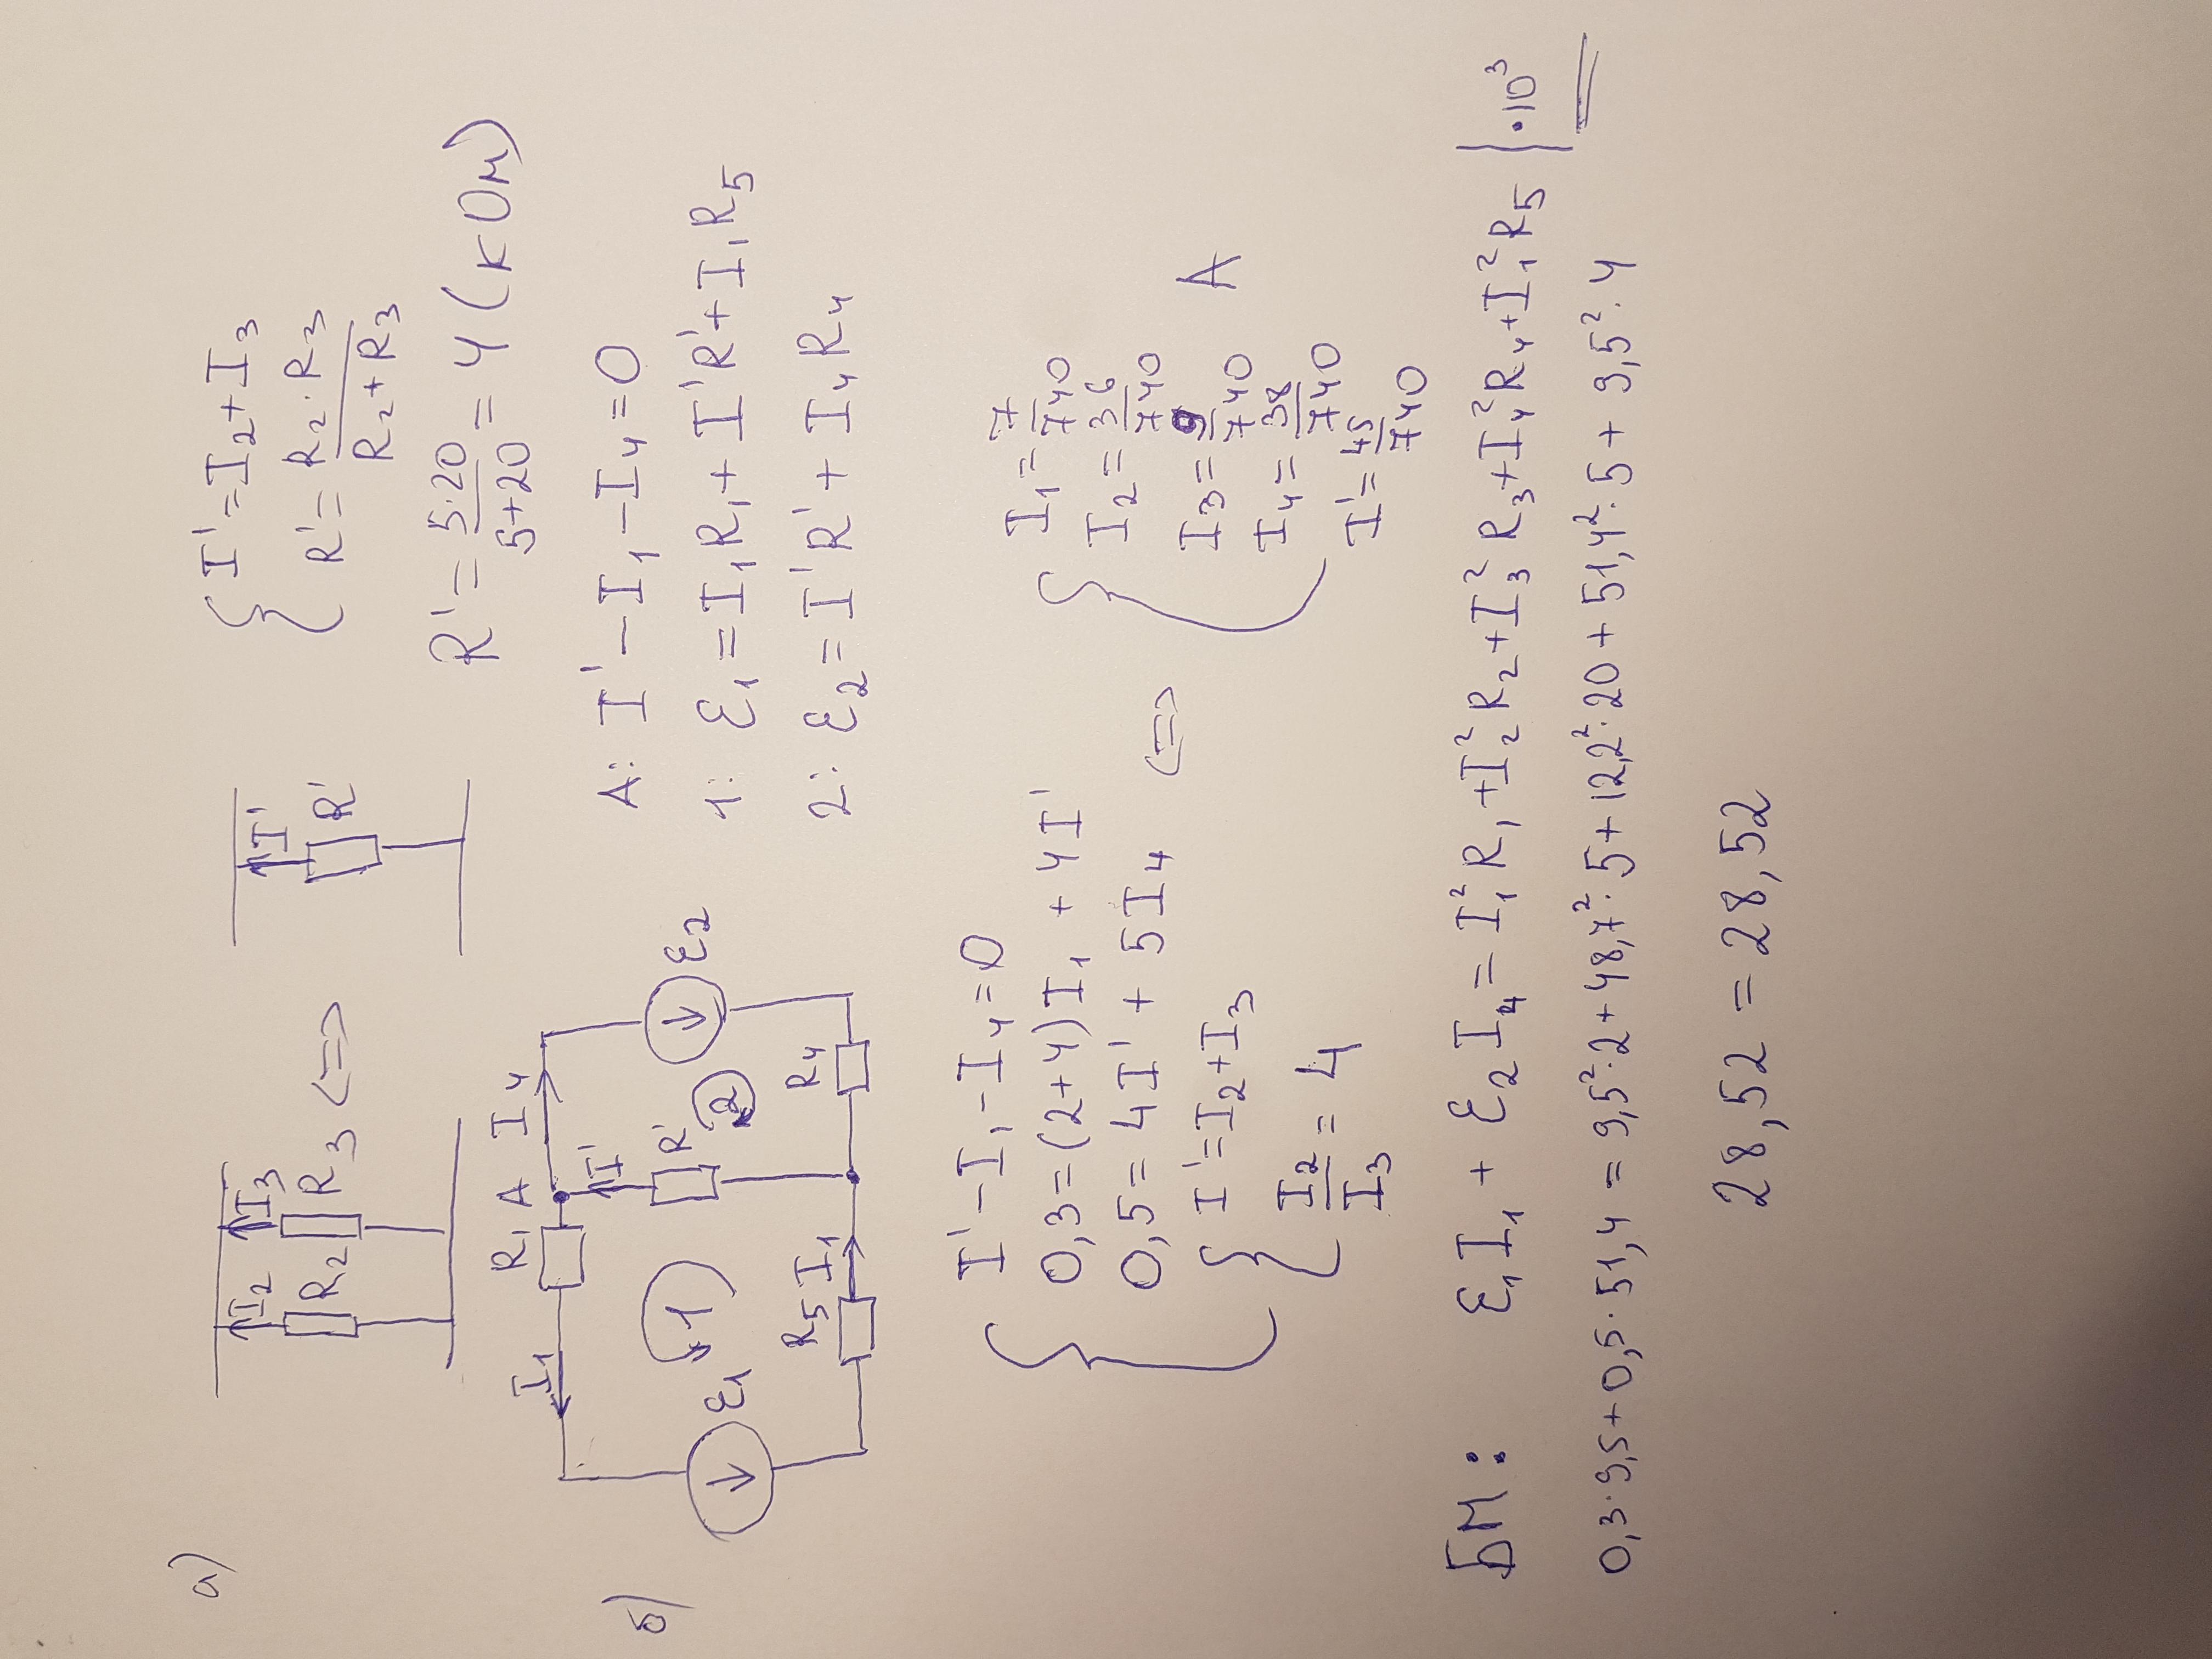 а)
I₂ I₃
R₂ R₃ <=>
I'
R'
{ I' = I₂ + I₃
R' = R₂·R₃ / R₂+R₃
R' = 5·20 / 5+20 = 4 (кОм)
б)
I₁ R₁ A I₄
ε₁ 1 I' R' 2 ε₂
R₅ I₁ R₄
A: I' - I₁ - I₄ = 0
1: ε₁ = I₁R₁ + I'R' + I₁R₅
2: ε₂ = I'R' + I₄R₄
{ I' - I₁ - I₄ = 0
0,3 = (2+4)I₁ + 4I'
0,5 = 4I' + 5I₄ <=>
{ I' = I₂ + I₃
I₂/I₃ = 4
{ I₁ = 7/740
I₂ = 36/740
I₃ = 9/740 A
I₄ = 38/740
I' = 45/740
БМ: ε₁I₁ + ε₂I₄ = I₁²R₁ + I₂²R₂ + I₃²R₃ + I₄²R₄ + I₁²R₅ |·10³
0,3·9,5 + 0,5·51,4 = 9,5²·2 + 48,7²·5 + 12,2²·20 + 51,4²·5 + 9,5²·4
28,52 = 28,52